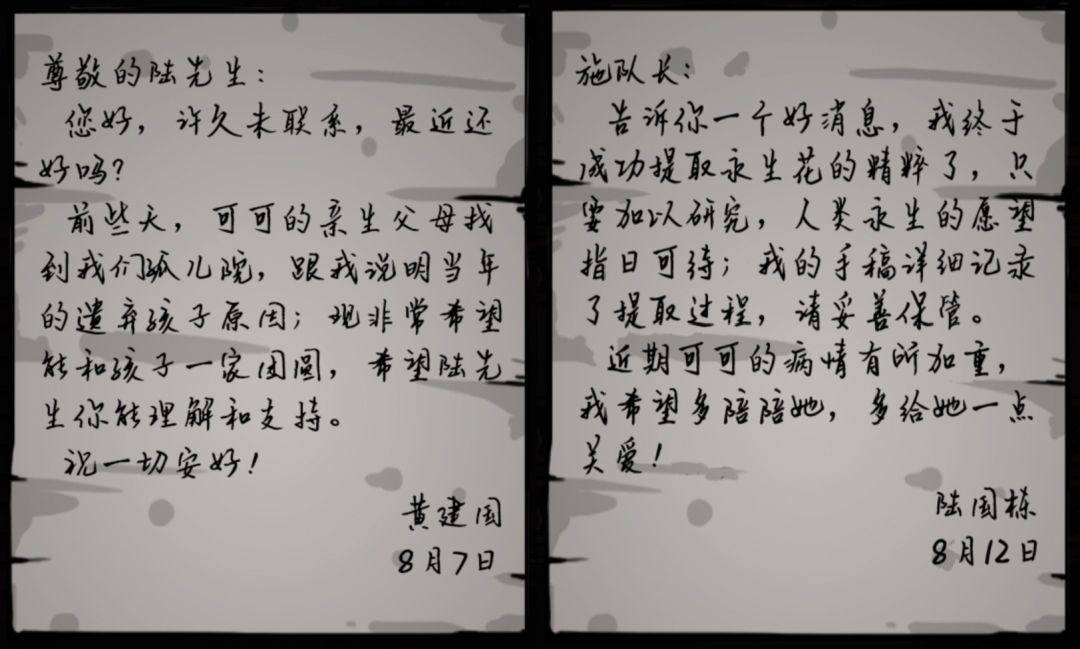 尊敬的陆先生：
您好，许久未联系，最近还
好吗？
前些天，可可的亲生父母找
到我们孤儿院，跟我说明当年
的遗弃孩子原因；现非常希望
能和孩子一家团圆，希望陆先
生你能理解和支持。
祝一切安好！
黄建国
8月7日
施队长：
告诉你一个好消息，我终于
成功提取永生花的精粹了，只
要加以研究，人类永生的愿望
指日可待；我的手稿详细记录
了提取过程，请妥善保管。
近期可可的病情有所加重，
我希望多陪陪她，多给她一点
关爱！
陆国栋
8月12日